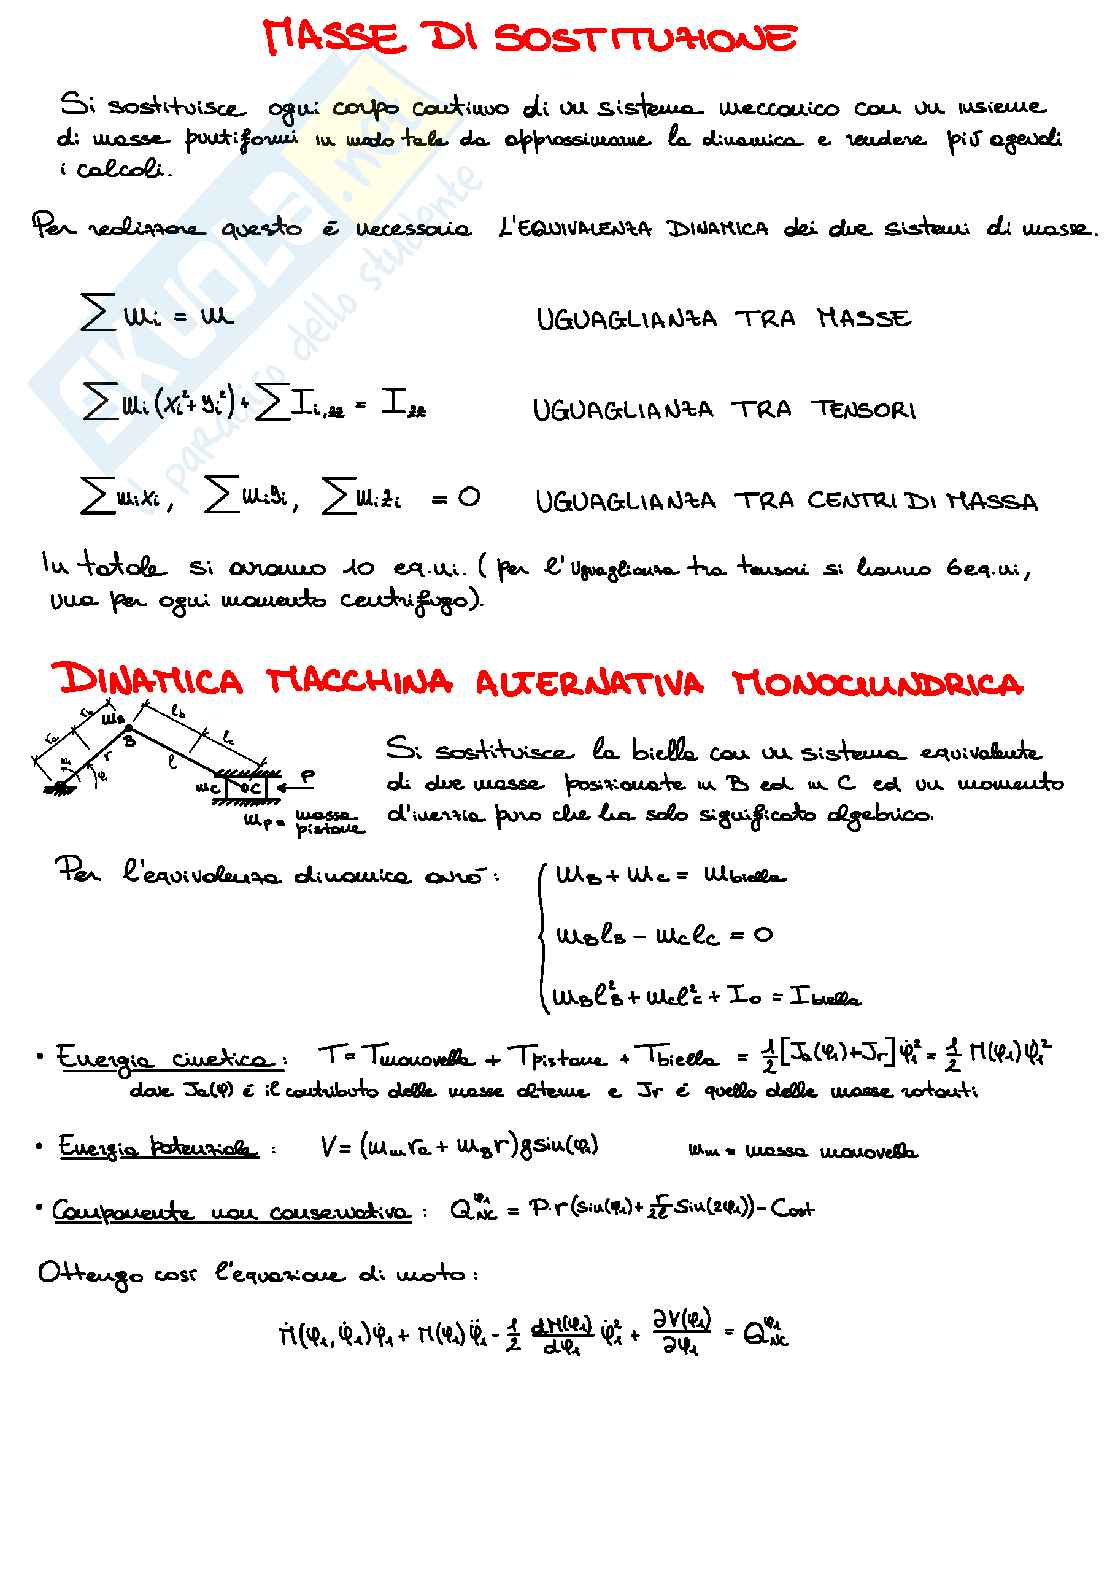 MASSE DI SOSTITUZIONE
Si sostituisce ogni corpo continuo di un sistema meccanico con un insieme
di masse puntiformi in modo tale da approssimarne la dinamica e rendere più agevoli
i calcoli.
Per realizzare questo è necessaria L'EQUIVALENZA DINAMICA dei due sistemi di masse.
∑ mi = m UGUAGLIANZA TRA MASSE
∑ mi (xi² + yi²) + ∑ Ii,zz = Izz UGUAGLIANZA TRA TENSORI
∑ mixi, ∑ miyi, ∑ mizi = 0 UGUAGLIANZA TRA CENTRI DI MASSA
In totale si avranno 10 eq.ni. (per l'uguaglianza tra tensori si hanno 6 eq.ni,
una per ogni momento centrifugo).
DINAMICA MACCHINA ALTERNATIVA MONOCILINDRICA
ra rb mB lb lc
B r l φ1
mC C P
mp = massa pistone
Si sostituisce la biella con un sistema equivalente
di due masse posizionate in B ed in C ed un momento
d'inerzia puro che ha solo significato algebrico.
Per l'equivalenza dinamica avrò: mB + mC = mbiella
mBlB - mClC = 0
mBlB² + mClC² + I0 = Ibiella
• Energia cinetica: T = Tmanovella + Tpistone + Tbiella = 1/2 [Ja(φ1) + Jr] φ̇1² = 1/2 M(φ1) φ̇1²
dove Ja(φ) è il contributo delle masse alterne e Jr è quello delle masse rotanti
• Energia potenziale: V = (mm ra + mB r) g sin(φ1) mm = massa manovella
• Componente non conservativa: QNC^φ1 = P·r (sin(φ1) + r/2l sin(2φ1)) - Cost
Ottengo così l'equazione di moto:
Ṁ(φ1, φ̇1)φ̇1 + M(φ1)φ̈1 - 1/2 dM(φ1)/dφ1 φ̇1² + ∂V(φ1)/∂φ1 = QNC^φ1
SKUOLA.net
il paradiso dello studente